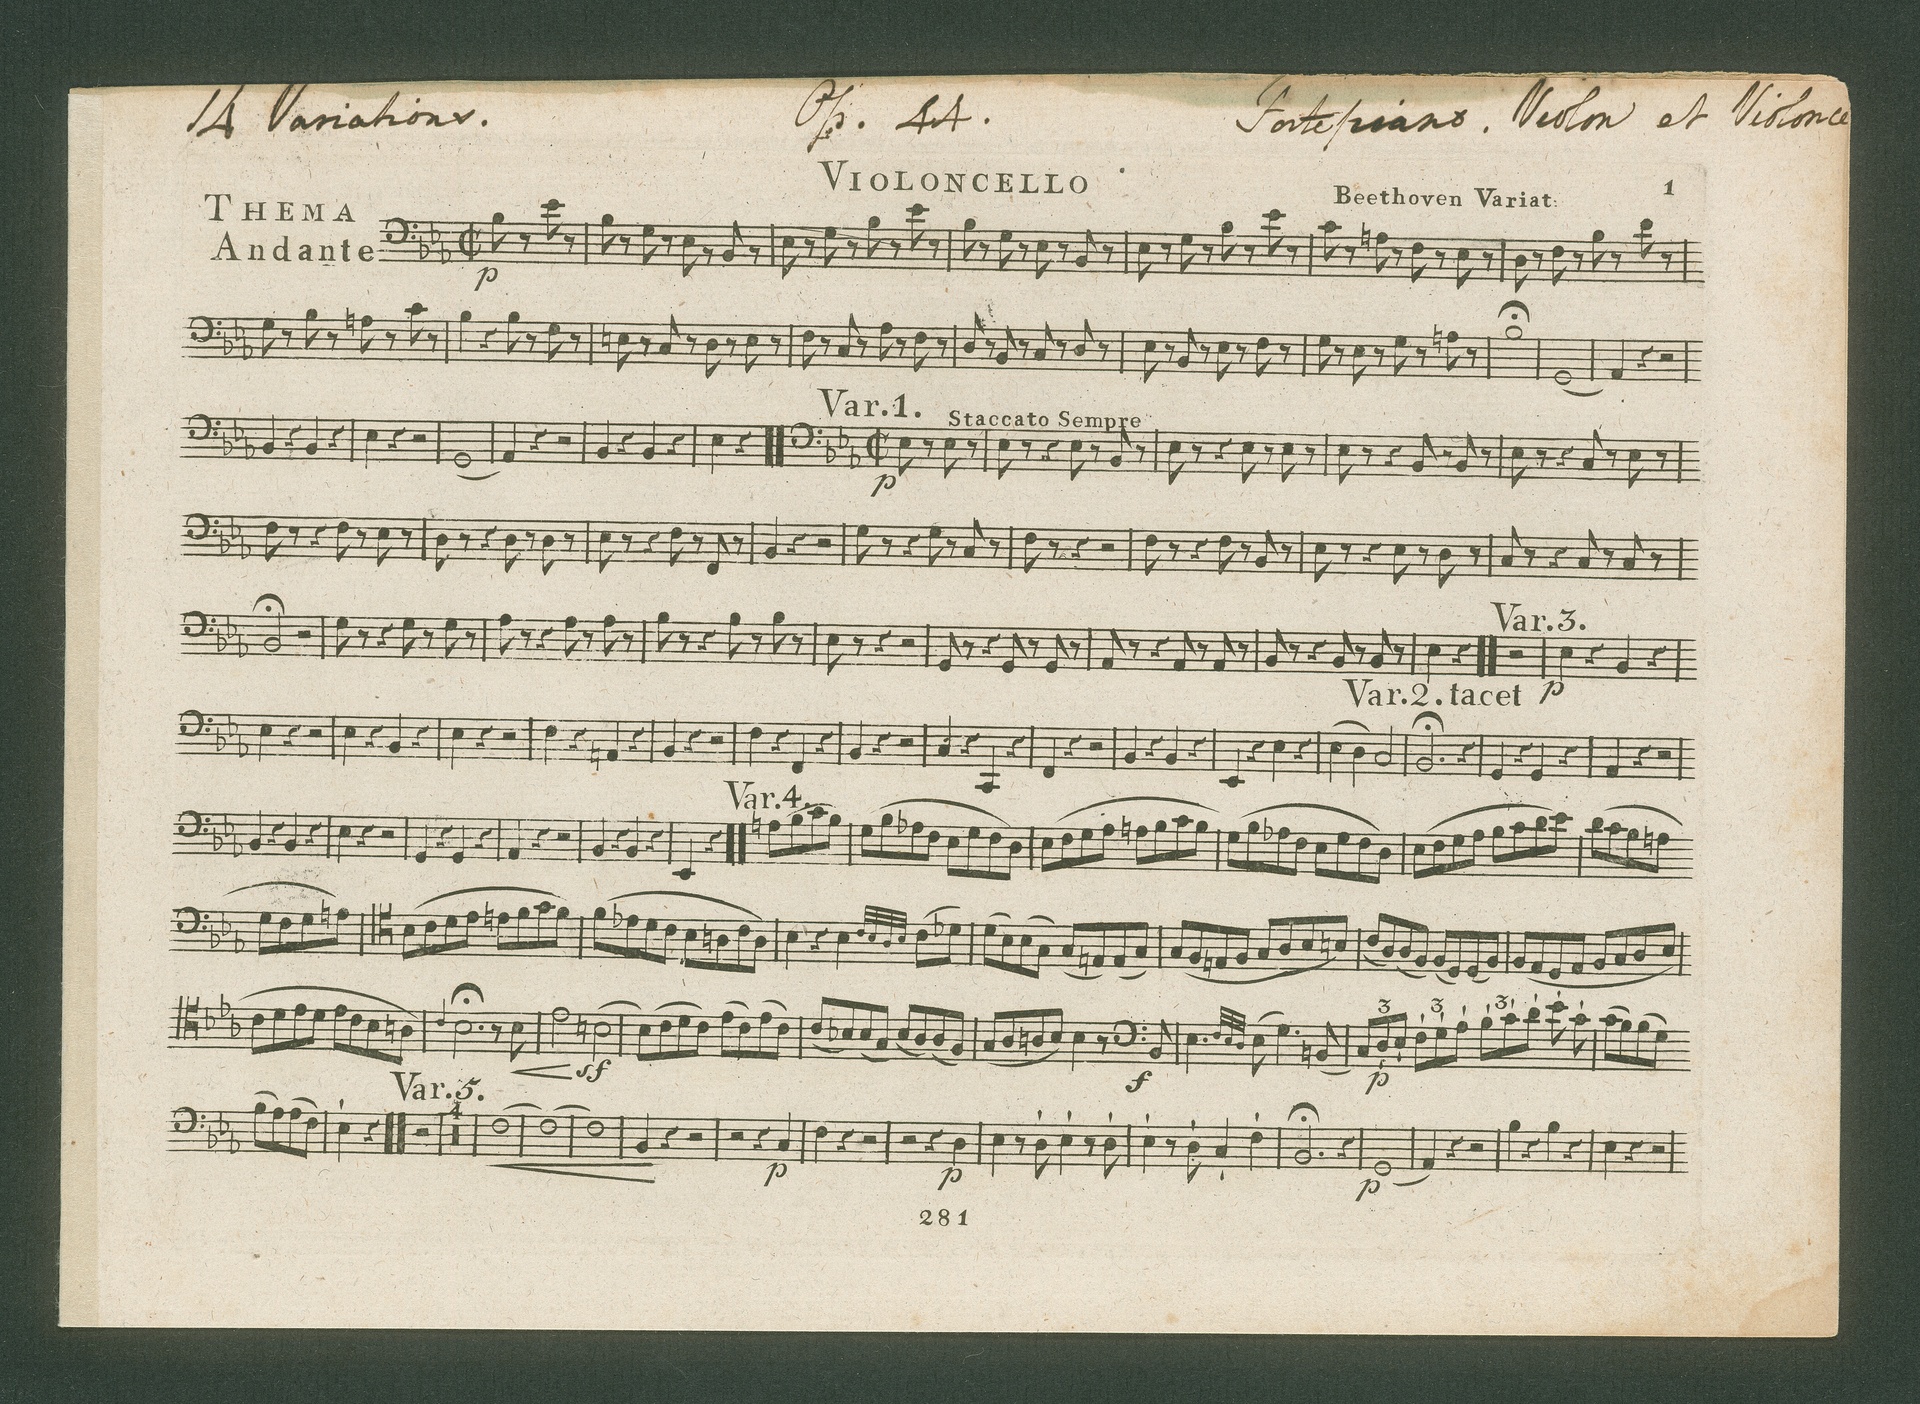 14 Variations. Op. 44. Fortepiano. Violon et Violonce
VIOLONCELLO
Beethoven Variat: 1
THEMA
Andante
p
Var.1. Staccato Sempre
p
Var.3.
Var.2. tacet p
Var.4.
3 3 3
sf f p
Var.5.
4
p p p
281